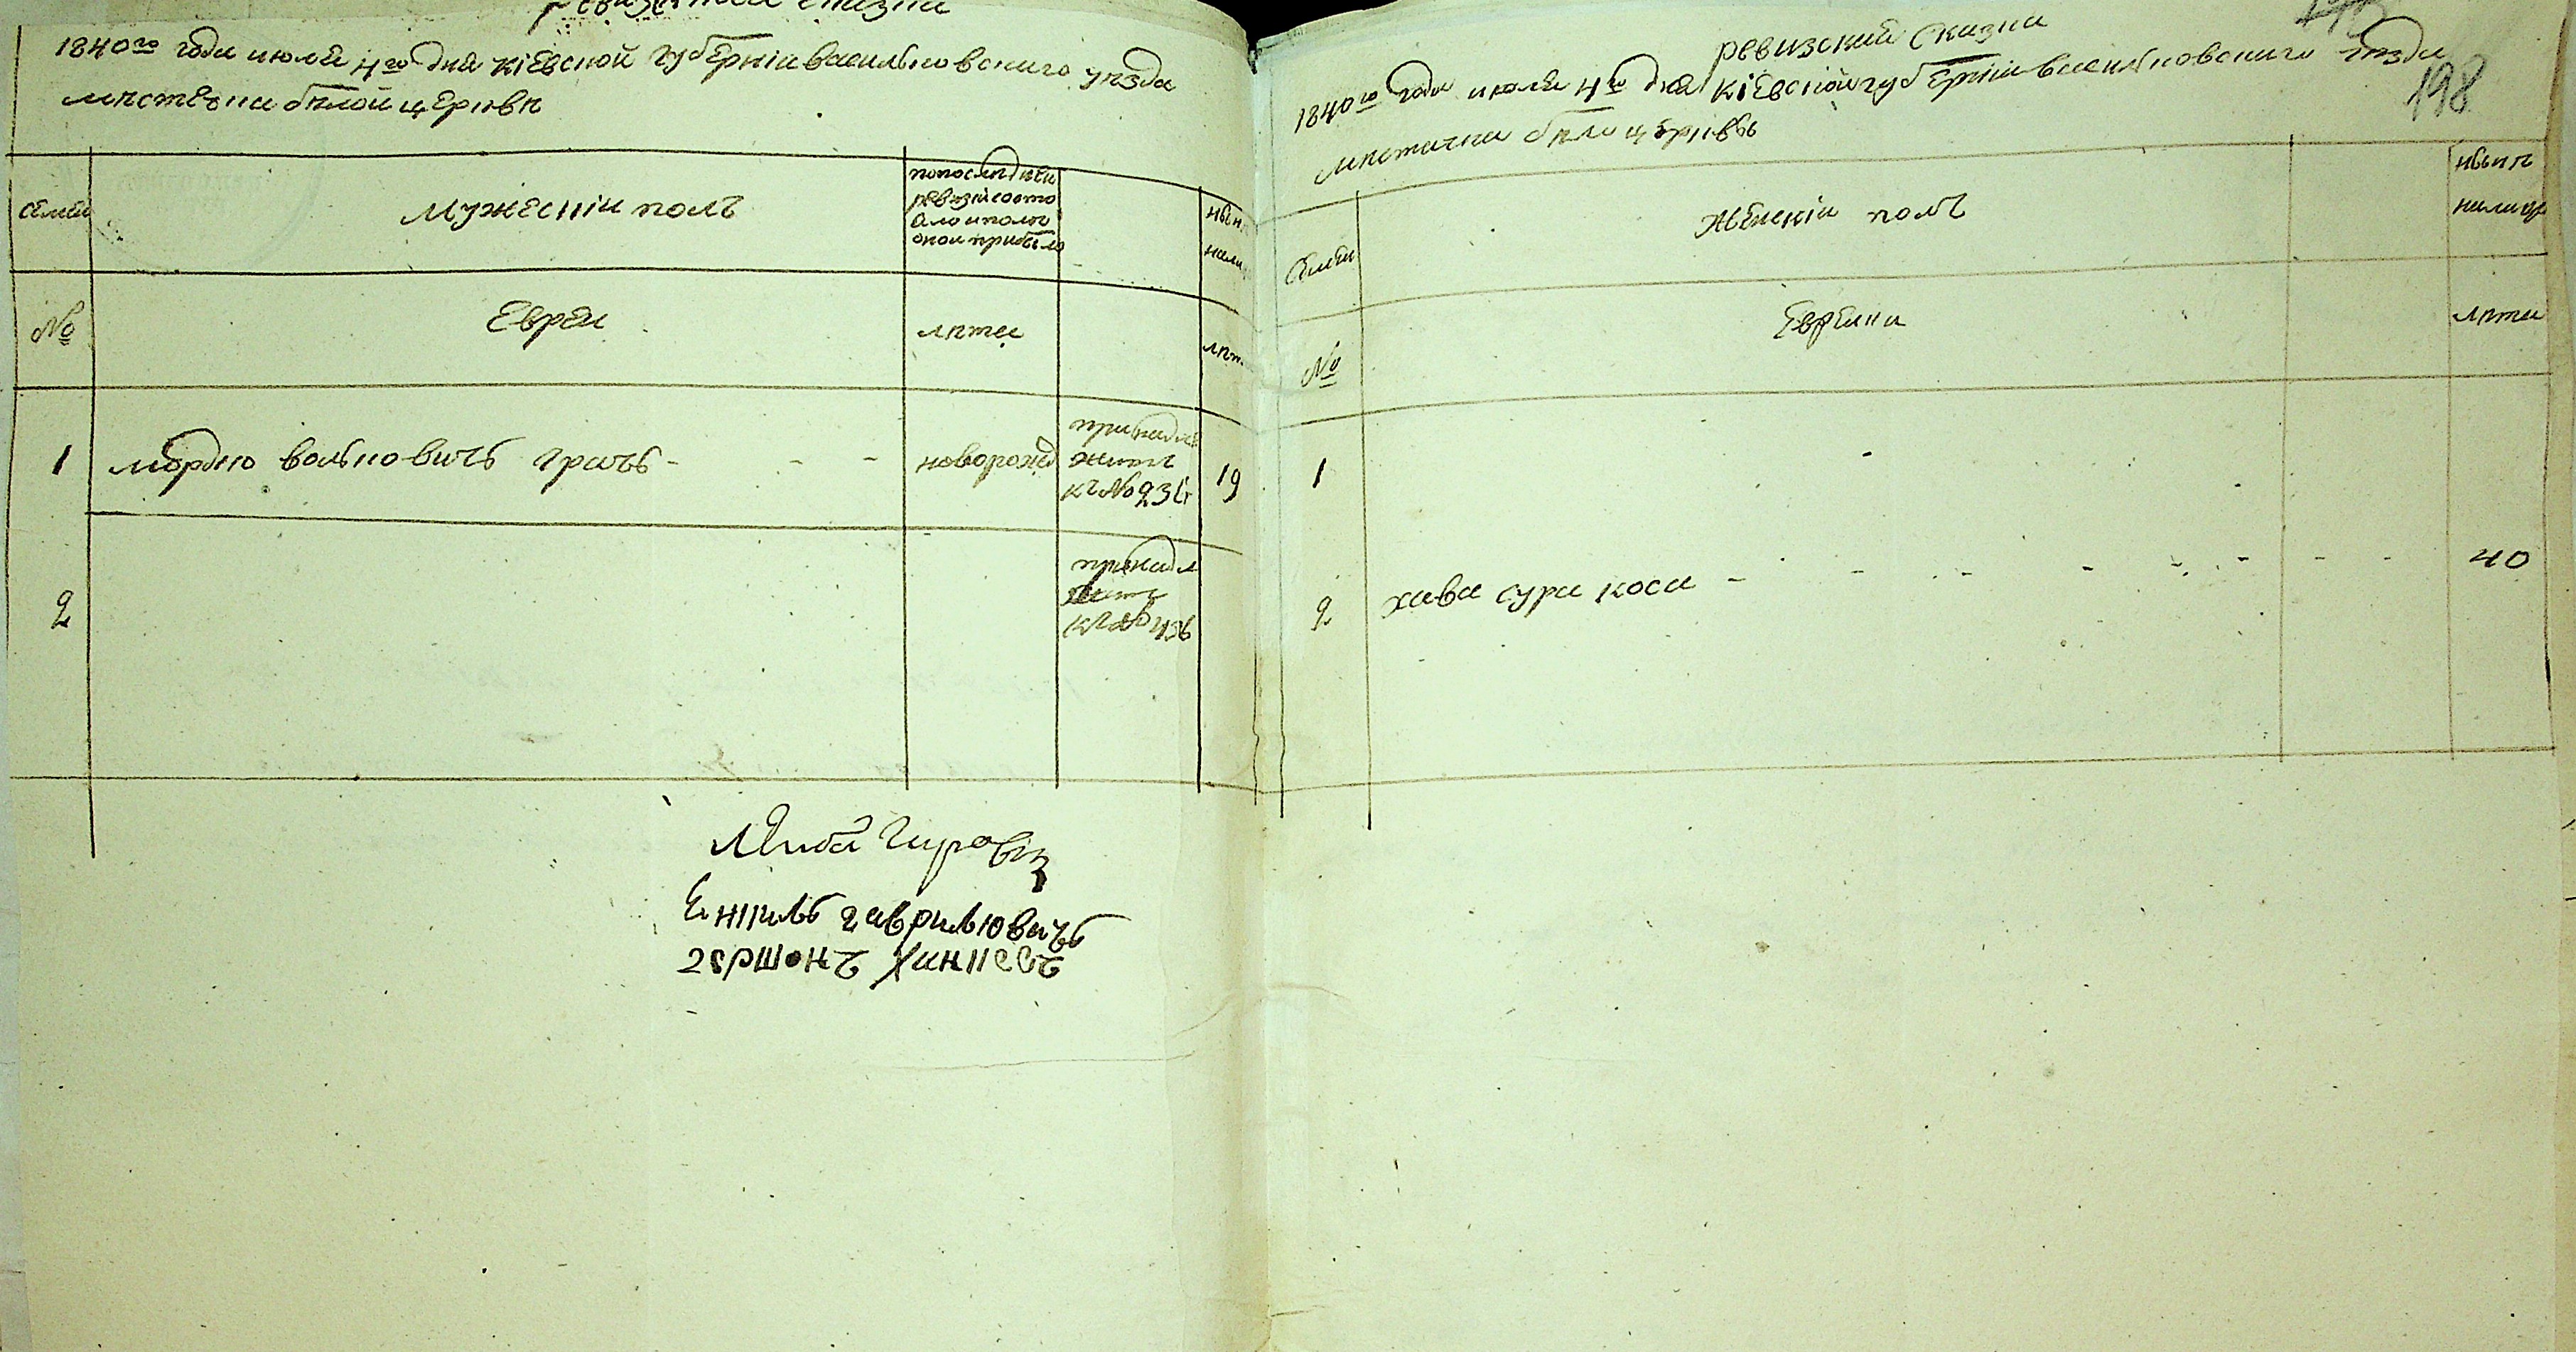 ревизския сказки
1840го года июля 4го дня кіевской губерніи васильковского уезда
местечки белой церкве
семьи
мужескіи полъ
попоследней
ревизіи состо
ало и после
оной прибыло
ныне
нали
№
Евреи
лета
лет
1
мордко вольковичъ грачъ - - -
новорожд
принадле
житъ
къ №
19
2
принадл
житъ
къ № 436
Лейба Гуровіч
Енкиль гавриловичъ
гершонъ
198
ревизския сказки
1840го года июля 4го дня кіевской губерніи васильковского уезда
местички бело церквы
Семьи
женскіи полъ
ныне
налицо
№
Еврейки
лета
1
2
хава сура коса - - - - - - - -
40